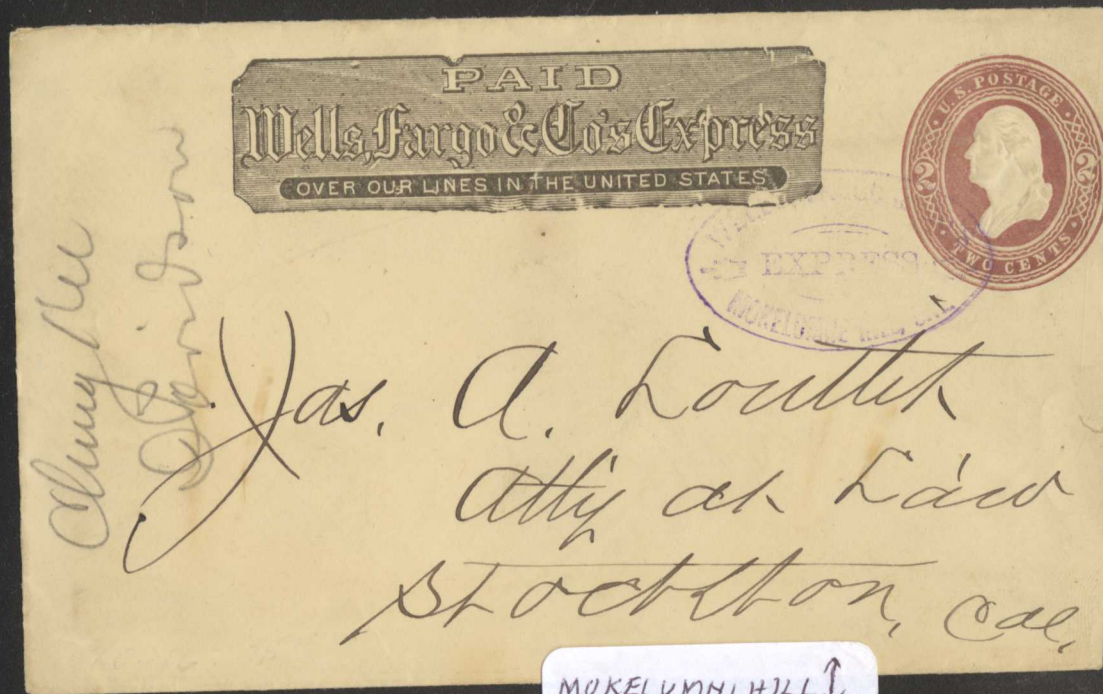 PAID
Wells, Fargo & Co's Express
OVER OUR LINES IN THE UNITED STATES
U.S. POSTAGE
2 2
TWO CENTS
EXPRESS
MOKELUMNE HILL, CAL
Jas. A. Louttit
Atty at Law
Stockton, Cal,
Davidson
MOKELUMNI HILL ↑